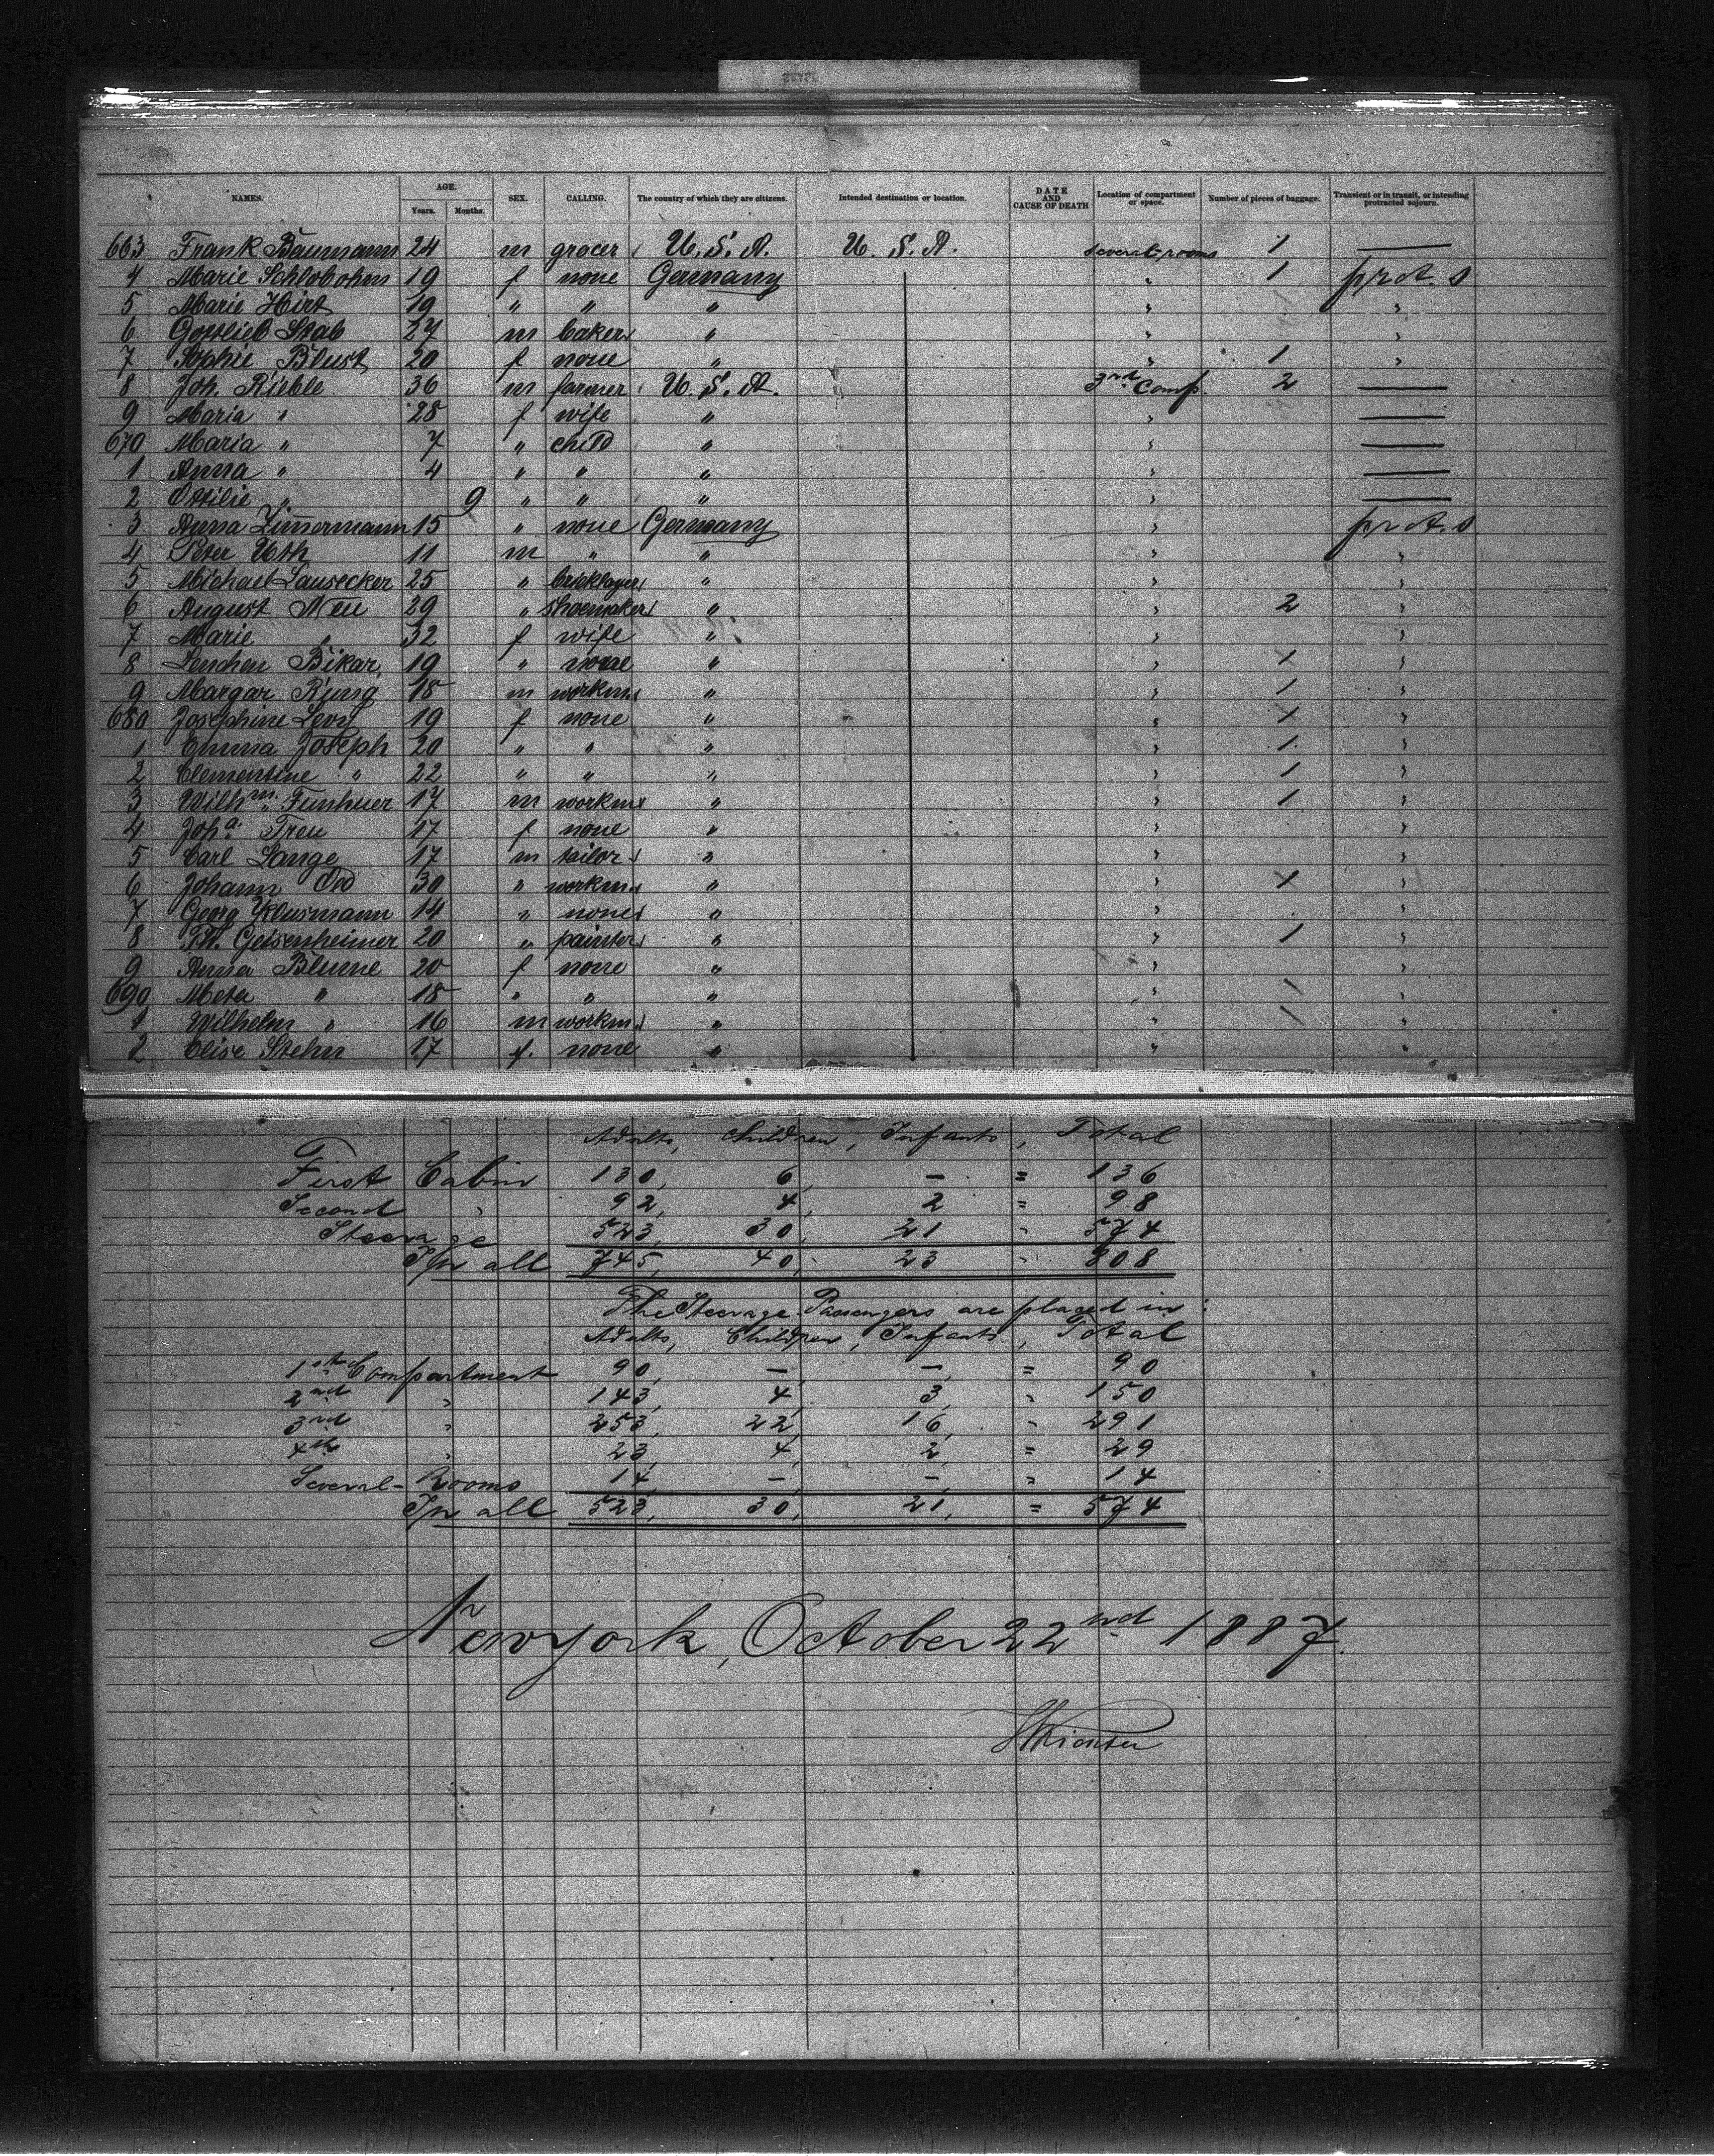 NAMES. AGE. Years. Months. SEX. CALLING. The country of which they are citizens. Intended destination or location. DATE AND CAUSE OF DEATH Location of compartment or space. Number of pieces of baggage. Transient or in transit, or intending protracted sojourn.
663 Frank Baumann 24 m grocer U. S. A. U. S. A. several-rooms 1 —
4 Marie Schlobohm 19 f none Germany " 1 prot. s
5 Marie Hirt 19 " " " " "
6 Gottlieb Stab 27 m baker " " "
7 Sophie Blust 20 f none " " 1 "
8 Joh. Rieble 36 m farmer U. S. A. 3rd Comp. 2 —
9 Maria " 28 f wife " " —
670 Maria " 7 " child " " —
1 Anna " 4 " " " " —
2 Ottilie " 9 " " " " —
3 Anna Zimmermann 15 " none Germany " prot. s
4 Peter Uth 11 m " " " "
5 Michael Lausecker 25 " bricklayer " " "
6 August Neu 29 " shoemaker " " 2 "
7 Marie " 32 f wife " " "
8 Lenchen Bikar 19 " none " " 1 "
9 Margar 18 m workm. " " 1 "
680 Josephine Levy 19 f none " " 1 "
1 Emma Joseph 20 " " " " 1 "
2 Clementine " 22 " " " " 1 "
3 Wilhm. 17 m workm. " " 1 "
4 Joha. Treu 17 f none " " "
5 Carl Lange 17 m tailor " " "
6 Johann 30 " workm. " " 1 "
7 Georg Klusmann 14 " none " " "
8 Geisenheimer 20 " painter " " 1 "
9 Anna Blume 20 f none " " "
690 Meta " 18 " " " " \ "
1 Wilhelm " 16 m workm. " " \ "
2 Elise Stehn 17 f. none " " "
Adults, Children, Infants, Total
First Cabin 130, 6, — = 136
Second " 92, 4, 2 = 98
Steerage 523, 30, 21 " 574
In all 745, 40, 23 " 808
The Steerage Passengers are placed in:
Adults, Children, Infants, Total
1st Compartment 90, —, —, = 90
2nd " 143, 4, 3, " 150
3rd " 253, 22, 16, " 291
4th " 23, 4, 2, = 29
Several-Rooms 14, —, —, " 14
In all 523, 30, 21, = 574
Newyork, October 22nd 1887.